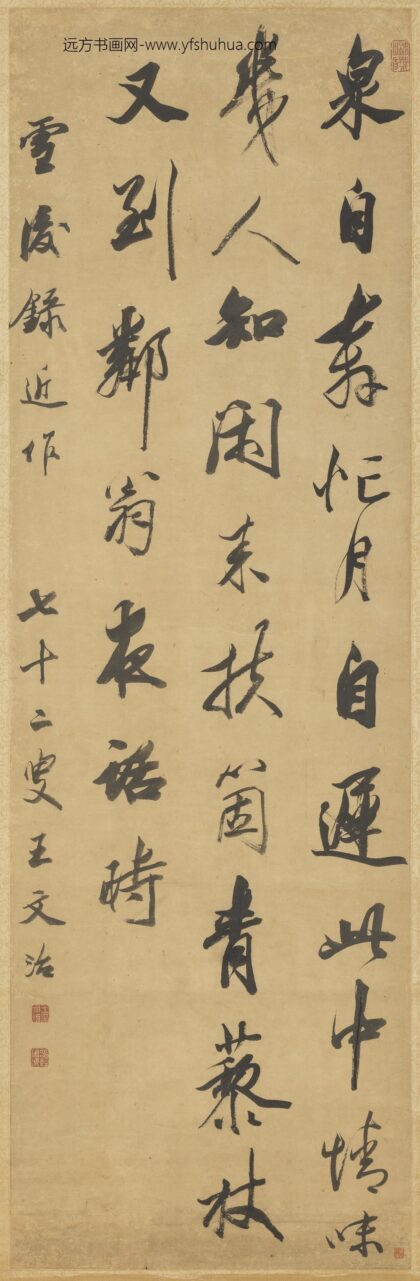 远方书画网-www.yfshuhua.com
泉自奔忙月自遲此中情味
幾人知閑來扶箇青藜杖
又到鄰翁夜話時
雪後錄近作 七十二叟王文治